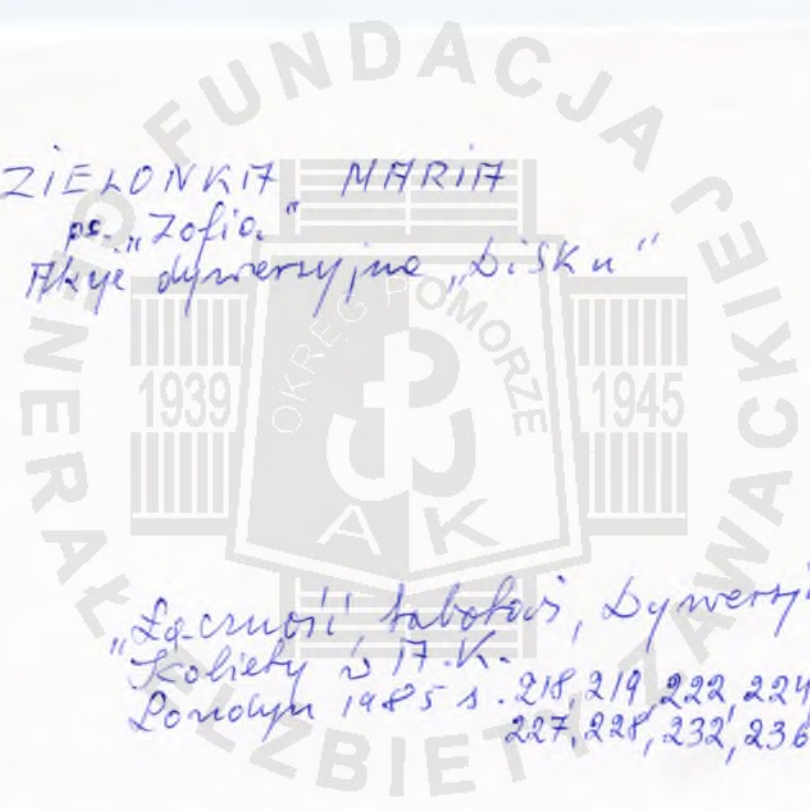 ZIELONKA MARIA
ps. „Zofia"
Akcje dywersyjne „DiSKu"
„Łączność, Sabotaż, Dywersj
Kobiety w A.K.
Londyn 1985 s. 218, 219, 222, 224
227, 228, 232, 236
FUNDACJA GENERAŁ ELŻBIETY ZAWACKIEJ
OKRĘG POMORZE
1939 1945
AK